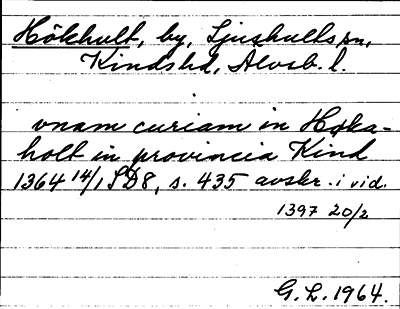 Hökhult, by, Ljushults sn,
Kinds hd, Älvsb. l.
vnam curiam in Høka-
holt in provincia Kind
1364 14/1 SD8, s. 435 avskr. i vid.
1397 20/2
G. L. 1964.